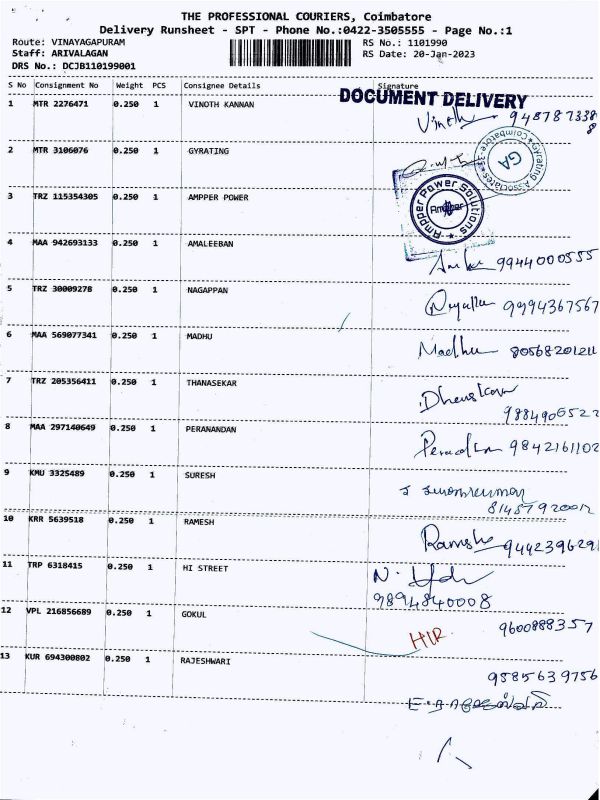 THE PROFESSIONAL COURIERS, Coimbatore
Delivery Runsheet - SPT - Phone No.:0422-3505555 - Page No.:1
Route: VINAYAGAPURAM RS No.: 1101990
Staff: ARIVALAGAN RS Date: 20-Jan-2023
DRS No.: DCJB110199001
S No Consignment No Weight PCS Consignee Details Signature
DOCUMENT DELIVERY
1 MTR 2276471 0.250 1 VINOTH KANNAN Vinoth
2 MTR 3106076 0.250 1 GYRATING
Gyrating Associates Coimbatore-35 GA
3 TRZ 115354305 0.250 1 AMPPER POWER
Ampper Power Solutions Ampper
4 MAA 942693133 0.250 1 AMALEEBAN 9944000555
5 TRZ 30009278 0.250 1 NAGAPPAN 9994367567
6 MAA 569077341 0.250 1 MADHU Madhu 80568201211
7 TRZ 205356411 0.250 1 THANASEKAR
9884906522
8 MAA 297140649 0.250 1 PERANANDAN 9842161102
9 KMU 3325489 0.250 1 SURESH
10 KRR 5639518 0.250 1 RAMESH Ramesh 9442396291
11 TRP 6318415 0.250 1 HI STREET
9894840008
12 VPL 216856689 0.250 1 GOKUL 9600888357
13 KUR 694300802 0.250 1 RAJESHWARI
9585639756
E. ராஜேஸ்வரி